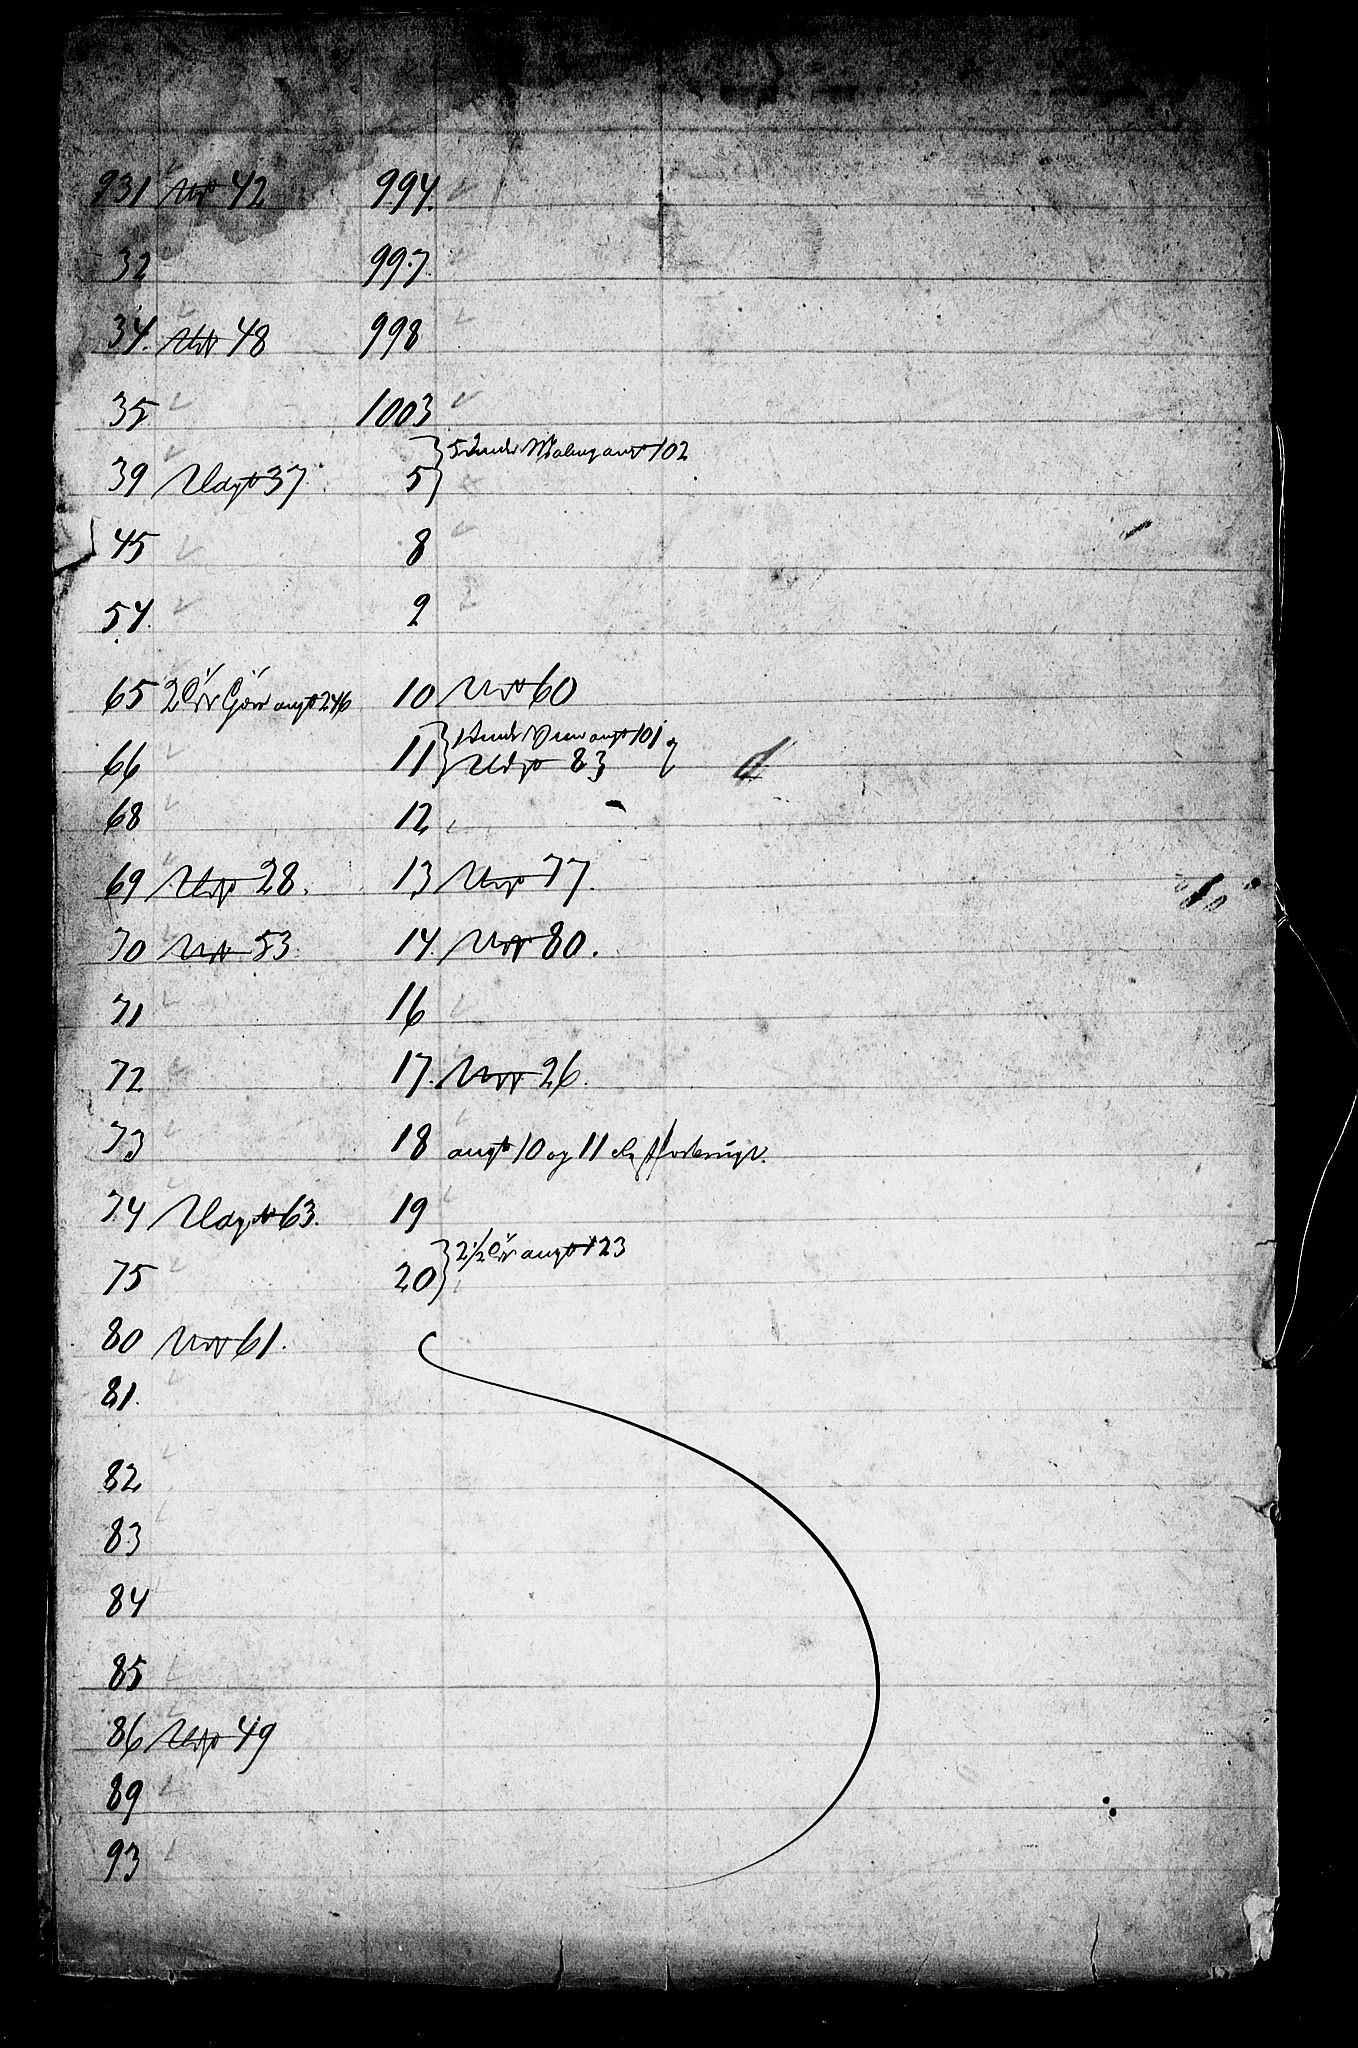 931 Udgt 42
32
34. Udgt 48
35
39 Udgt 37
45
54.
65 2 angt 246
66
68
69 Udgt 28.
70 Udgt 53.
71
72
73
74 Udgt 63.
75
80 Udgt 61.
81.
82
83
84
85
86 Udgt 49
89
93
994.
997.
998
1003
5 102
8
9
10 Udgt 60
11 angt 101
Udgt 83
12
13 Udgt 77.
14. Udgt 80.
16
17. Udgt 26.
18 angt 10 og 11
19
20 2 1/2 angt 123